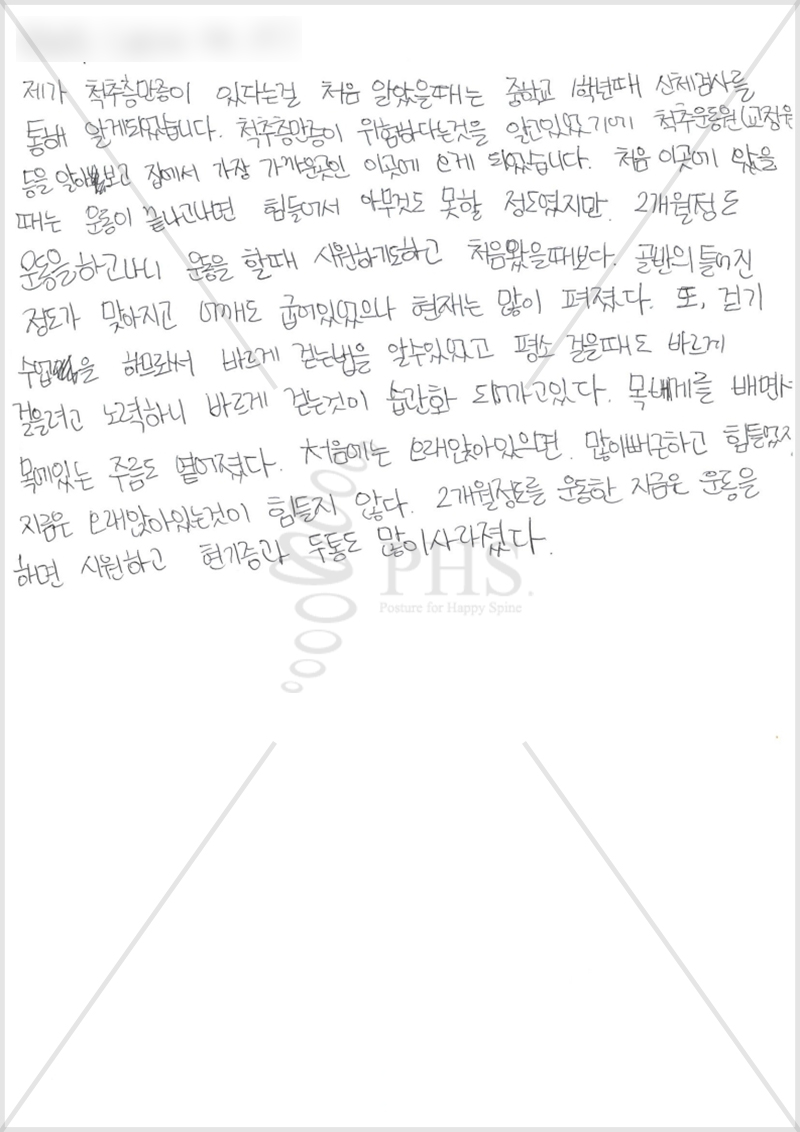 제가 척추층만증이 있다는걸 처음 알았을때는 중학교 1학년때 신체검사를
통해 알게되었습니다. 척추층만증이 위험하다는것을 알고있었기에 척추운동원(교정운
등을 알아보고 집에서 가장 가까운곳인 이곳에 오게 되었습니다. 처음 이곳에 왔을
때는 운동이 끝나고나면 힘들어서 아무것도 못할 정도였지만. 2개월정도
운동을하고나니 운동을 할때 시원하기도하고 처음왔을때보다. 골반의틀어진
정도가 맞아지고 어깨도 굽어있었으나 현재는 많이 펴졌다. 또, 걷기
수업을 하므로써 바르게 걷는법을 알수있었고 평소 걸을때도 바르게
걸을려고 노력하니 바르게 걷는것이 습관화 되어가고있다. 목베게를 배면서
목에있는 주름도 옅어졌다. 처음에는 오래앉아있으면. 많이뻐근하고 힘들었지
지금은 오래앉아있는것이 힘들지 않다. 2개월정도를 운동한 지금은 운동을
하면 시원하고 현기증과 두통도 많이사라졌다.
PHS.
Posture for Happy Spine